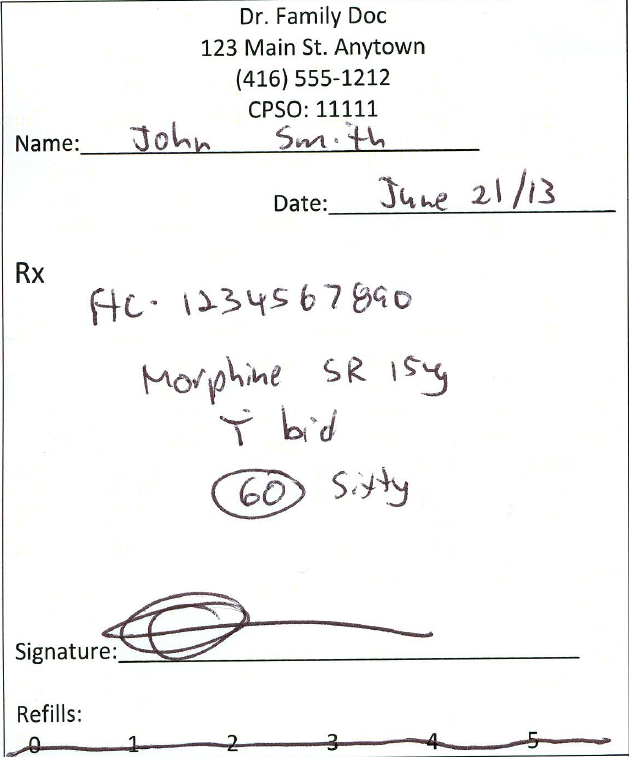 Dr. Family Doc
123 Main St. Anytown
(416) 555-1212
CPSO: 11111
Name: John Smith
Date: June 21/13
Rx
HC. 1234567890
Morphine SR 15mg
T bid
60 Sixty
Signature:
Refills:
0 1 2 3 4 5